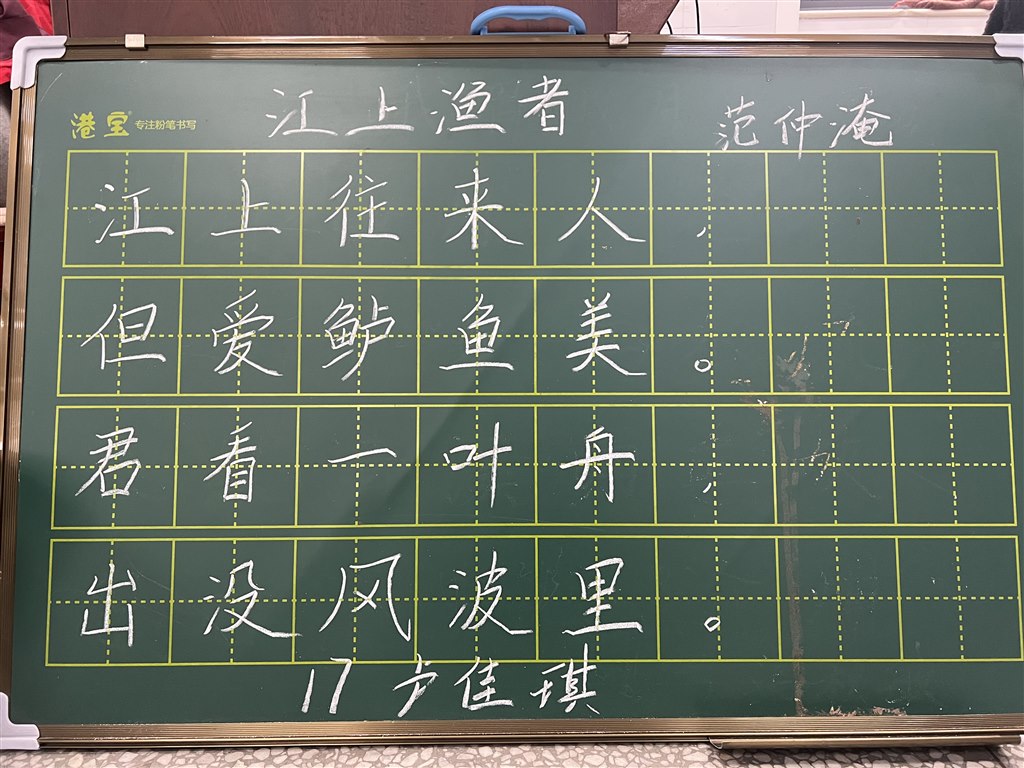 港宝 专注粉笔书写
江上渔者 范仲淹
江上往来人，
但爱鲈鱼美。
君看一叶舟，
出没风波里。
17 卢佳琪